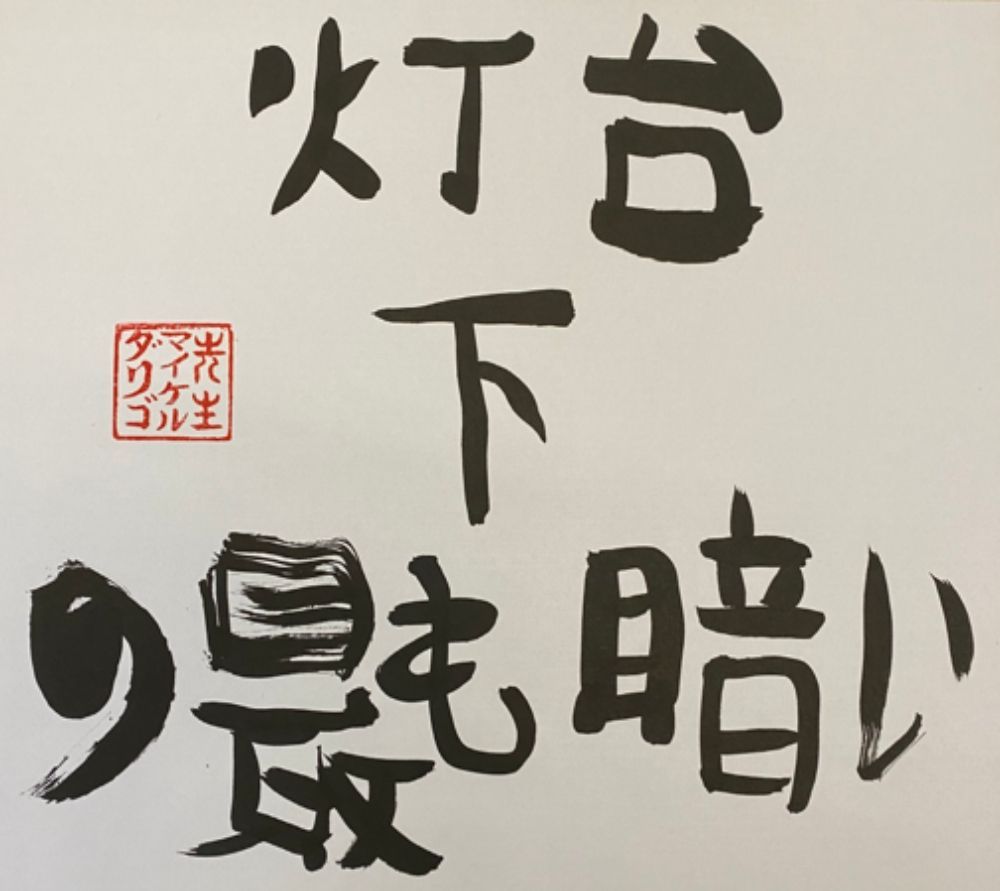 灯台
下
の最も暗い
先生
マイケル
ダリゴ